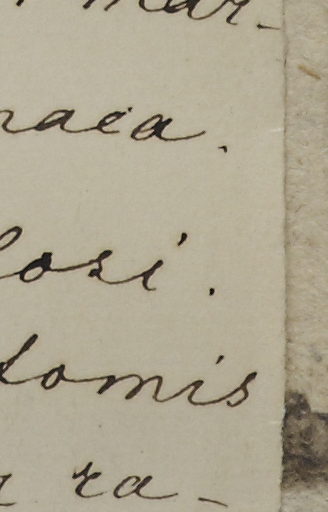 mar-
naca.
losi.
tomis
ra-